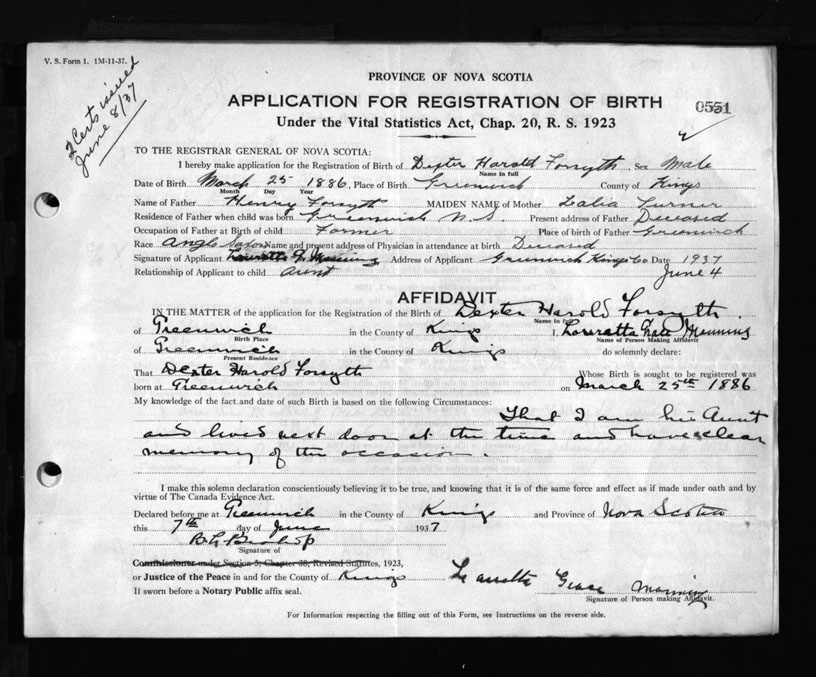 V. S. Form 1. 1M-11-37.
2 Certs issued
June 8/37
PROVINCE OF NOVA SCOTIA
APPLICATION FOR REGISTRATION OF BIRTH
0551
Under the Vital Statistics Act, Chap. 20, R. S. 1923
TO THE REGISTRAR GENERAL OF NOVA SCOTIA:
I hereby make application for the Registration of Birth of Dexter Harold Forsyth. Sex Male
Name in full
Date of Birth March 25 1886, Place of Birth Greenwich County of Kings
Month Day Year
Name of Father Henry Forsyth MAIDEN NAME of Mother Turner
Residence of Father when child was born Greenwich N.S. Present address of Father Deceased
Occupation of Father at Birth of child Farmer Place of birth of Father Greenwich
Race Anglo Saxon Name and present address of Physician in attendance at birth Deceased
Signature of Applicant Manning Address of Applicant Greenwich Kings Co Date 1937
June 4
Relationship of Applicant to child aunt
AFFIDAVIT
IN THE MATTER of the application for the Registration of the Birth of Dexter Harold Forsyth.
Name in full
of Greenwich in the County of Kings I, Manning
Birth Place Name of Person Making Affidavit
of Greenwich in the County of Kings do solemnly declare:
Present Residence
That Dexter Harold Forsyth Whose Birth is sought to be registered was
born at Greenwich on March 25th 1886
My knowledge of the fact and date of such Birth is based on the following Circumstances:
That I am his Aunt
and lived next door at the time and have a clear
memory of the occasion.
I make this solemn declaration conscientiously believing it to be true, and knowing that it is of the same force and effect as if made under oath and by
virtue of The Canada Evidence Act.
Declared before me at Greenwich in the County of Kings and Province of Nova Scotia
this 7th day of June 1937
Bishop
Signature of
Commissioner under Section 5, Chapter 38, Revised Statutes, 1923,
or Justice of the Peace in and for the County of Kings Grace Manning
If sworn before a Notary Public affix seal. Signature of Person making Affidavit.
For Information respecting the filling out of this Form, see Instructions on the reverse side.